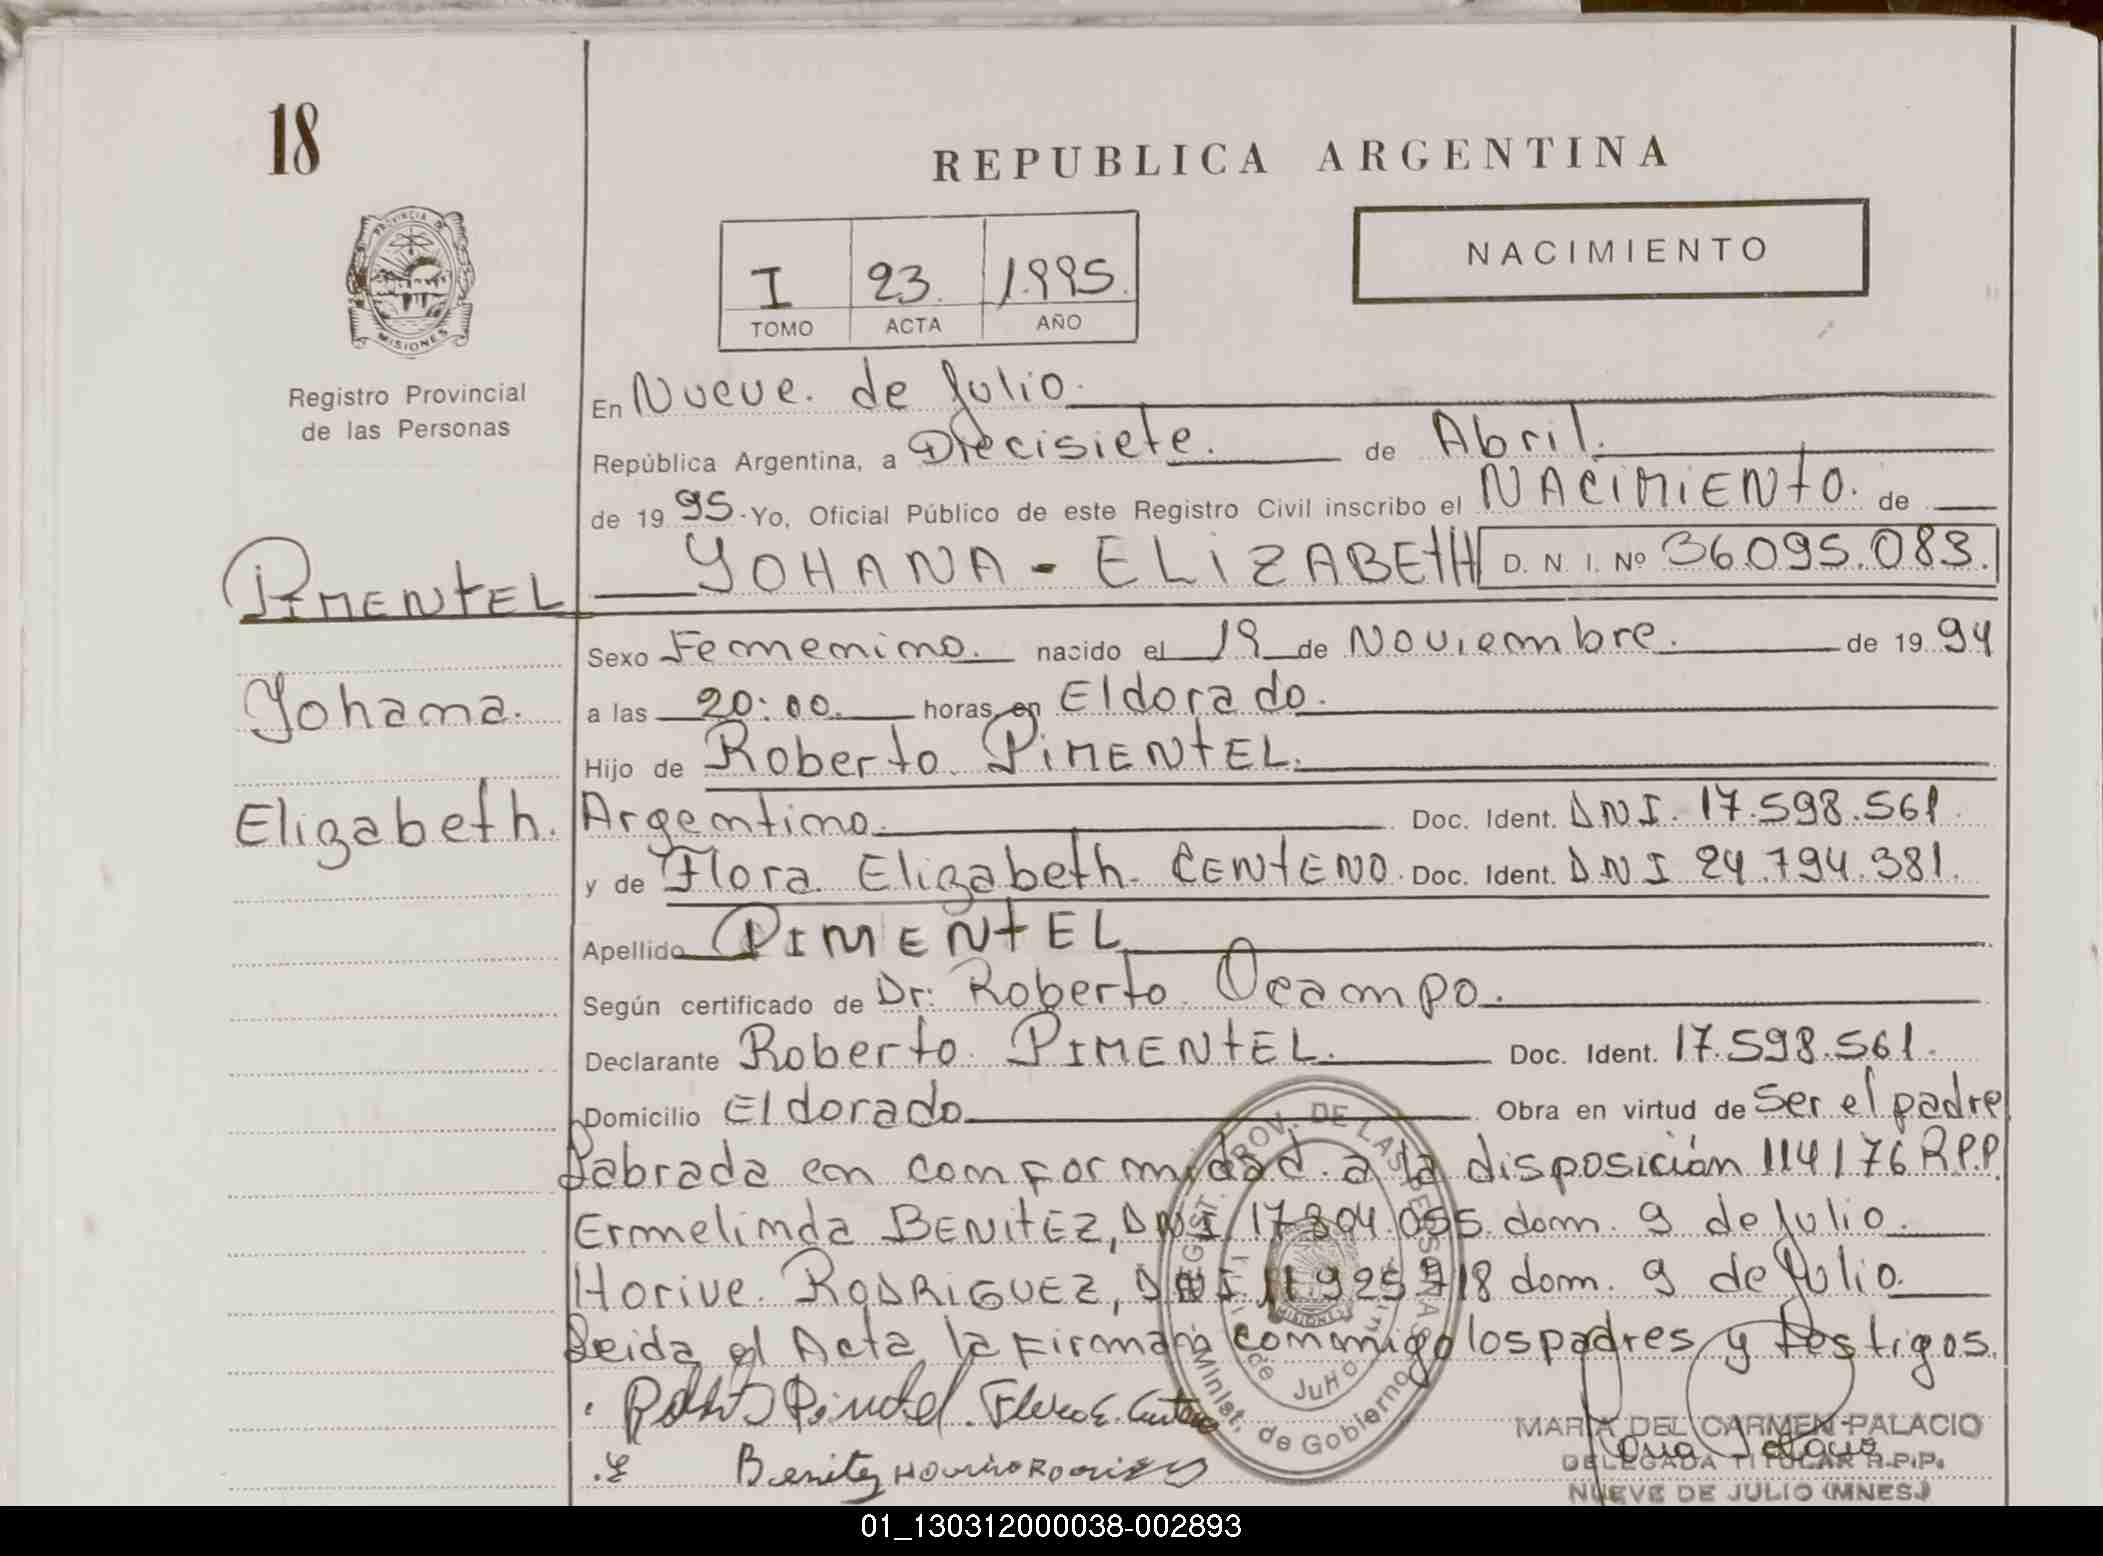 18
REPUBLICA ARGENTINA
PROVINCIA DE
MISIONES
I 23. 1.995.
TOMO ACTA AÑO
NACIMIENTO
Registro Provincial
de las Personas
En Nueve. de Julio.
República Argentina, a Diecisiete. de Abril.
de 19 95.-Yo, Oficial Público de este Registro Civil inscribo el NACIMIENTO. de
PIMENTEL YOHANA - ELIZABETH D. N. I. Nº 36.095.083.
Sexo Femenino. nacido el 19 de Noviembre. de 19 94
Yohana. a las 20:00. horas, en Eldorado.
Hijo de Roberto PIMENTEL.
Elizabeth. Argentino. Doc. Ident. DNI. 17.598.561.
y de Flora Elizabeth CENTENO. Doc. Ident. DNI 24.794.381.
Apellido PIMENTEL
Según certificado de Dr: Roberto Ocampo.
Declarante Roberto PIMENTEL. Doc. Ident. 17.598.561.
Domicilio Eldorado Obra en virtud de Ser el padre
Labrada en conformidad a la disposición 114/76 R.P.P
Ermelinda BENITEZ, DNI 17.804.055. dom. 9 de Julio.
Horive RODRIGUEZ, DNI 11.925.718 dom. 9 de Julio.
Leida el Acta la Firman conmigo los padres y testigos.
REGIST. PROV. DE LAS PERSONAS
de Julio
Minist. de Gobierno
Flora E. Centeno
Benitez
MARIA DEL CARMEN PALACIO
DELEGADA TITULAR R.P.P.
NUEVE DE JULIO (MNES.)
01_130312000038-002893